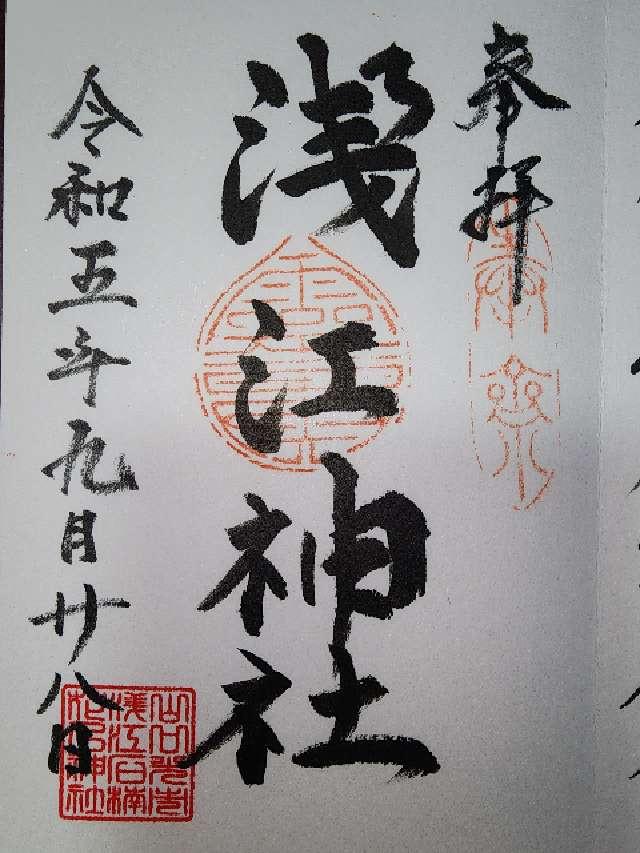 奉拝
浅江神社
令和五年九月廿八日